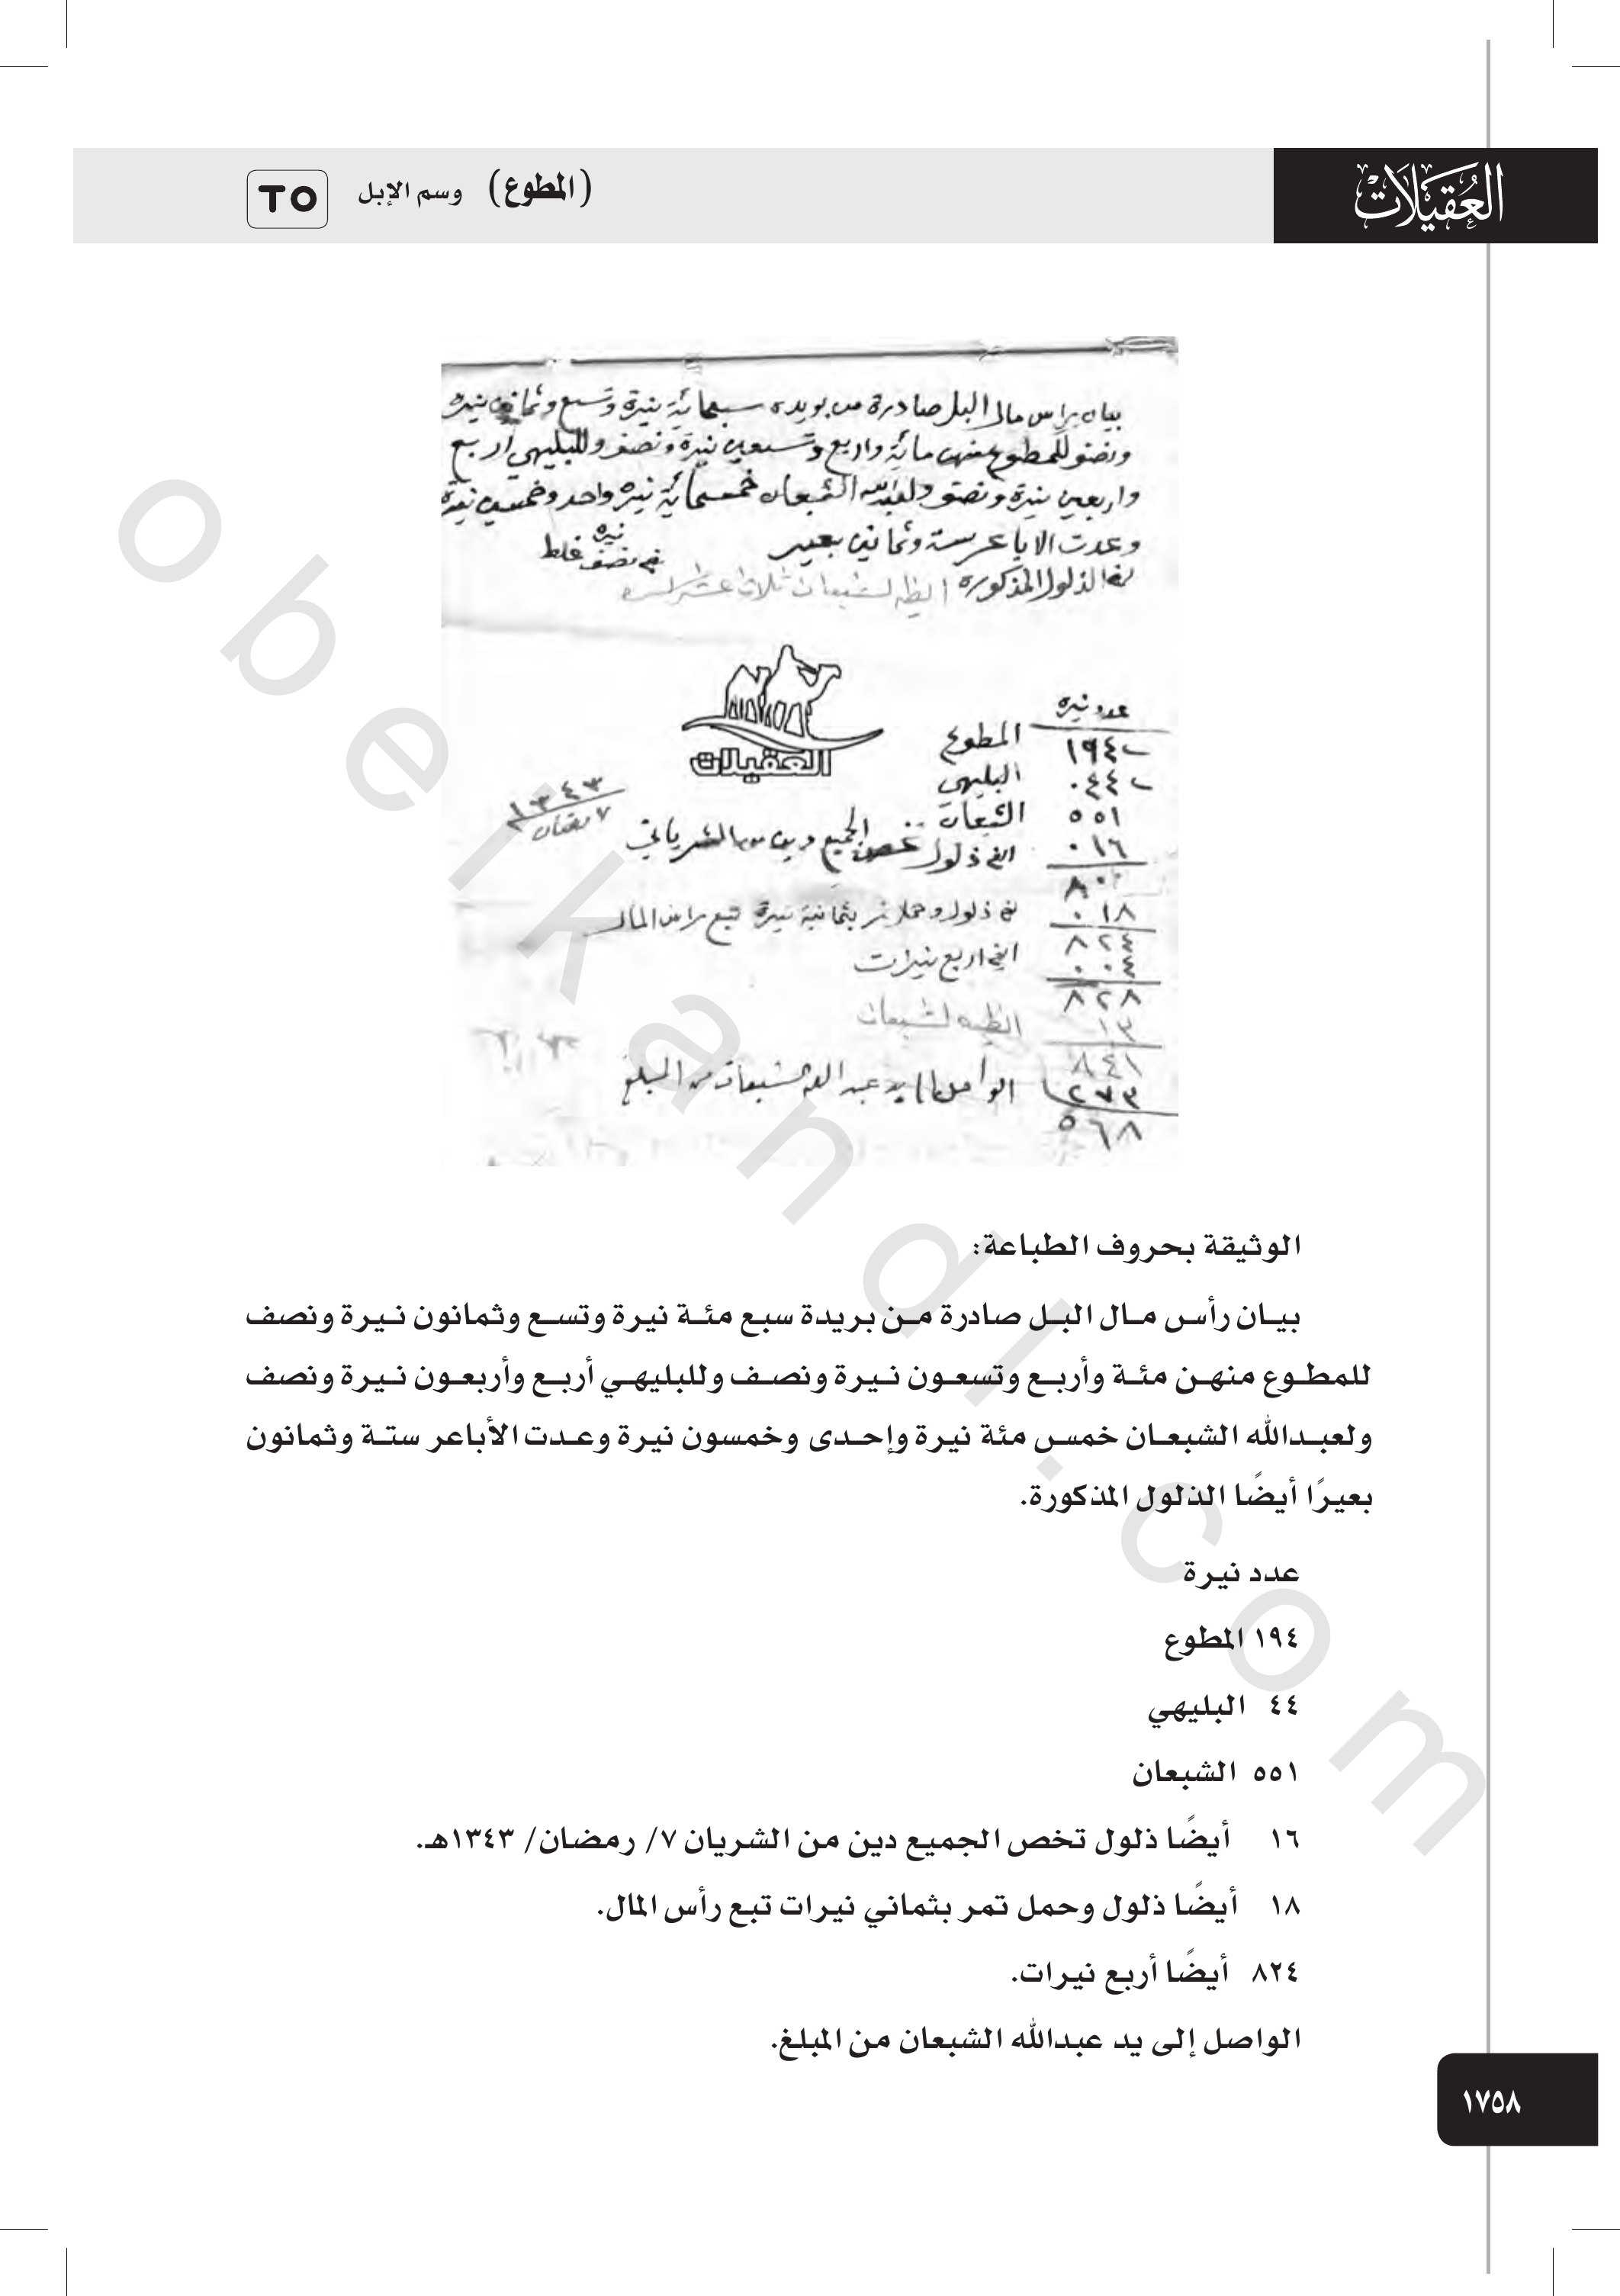 العُقيلات
(المطوع) وسم الإبل TO
بيان براس مال البل صادرة من بريده سبعمائة نيرة وتسع وثمانين نيره
ونصف للمطوع منهن مائة واربع وتسعين نيرة ونصف وللبليهي اربع
واربعين نيرة ونصف ولعبدالله الشبعان خمسمائة نيره واحد وخمسين نيرة
وعدت الاباعر ستة وثمانين بعير
نيره
في نصف غلط
الذلول المذكوره
عدد نيره
١٩٤ المطوع
٠٤٤ البليهي
٥٥١ الشبعان
٠١٦ ايضا ذلول تخص الجميع دين من الشرياني
١٣٤٣
٧ رمضان
٠١٨ ذلول وحمل تمر بثمانية نيرة تبع راس المال
٨٢٤
٠٠٤ ايضا اربع نيرات
٨٢٨
١٣
٨٤١
٢٧٣ الواصل يد عبدالله الشبعان من المبلغ
٥٦٨
العقيلات
الوثيقة بحروف الطباعة:
بيان رأس مال البل صادرة من بريدة سبع مئة نيرة وتسع وثمانون نيرة ونصف
للمطوع منهن مئة وأربع وتسعون نيرة ونصف وللبليهي أربع وأربعون نيرة ونصف
ولعبدالله الشبعان خمس مئة نيرة وإحدى وخمسون نيرة وعدت الأباعر ستة وثمانون
بعيرًا أيضًا الذلول المذكورة.
عدد نيرة
١٩٤ المطوع
٤٤ البليهي
٥٥١ الشبعان
١٦ أيضًا ذلول تخص الجميع دين من الشريان ٧/ رمضان/ ١٣٤٣هـ.
١٨ أيضًا ذلول وحمل تمر بثماني نيرات تبع رأس المال.
٨٢٤ أيضًا أربع نيرات.
الواصل إلى يد عبدالله الشبعان من المبلغ.
١٧٥٨
obeikandl.com